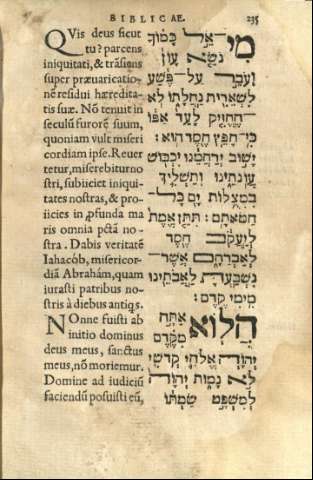 BIBLICAE. 235
QVis deus sicut
tu? parcens
iniquitati, & trãsiens
super præuaricatio-
nẽ residui hæredita-
tis suæ. Nõ tenuit in
seculũ furorẽ suum,
quoniam vult miseri
cordiam ipse. Reuer
tetur, miserebitur no
stri, subiiciet iniqui
tates nostras, & pro-
iicies in ꝓfunda ma
ris omnia pctã no-
stra. Dabis veritatẽ
Iahacób, misericor-
diã Abrahám, quam
iurasti patribus no-
stris à diebus antiqs.
NOnne fuisti ab
initio dominus
deus meus, sanctus
meus, nõ moriemur.
Domine ad iudiciũ
faciendũ posuisti eũ,
מִי אֵל כָּמוֹךָ
נֹשֵׂא עָוֹן
וְעֹבֵר עַל־פֶּשַׁע
לִשְׁאֵרִית נַחֲלָתוֹ לֹא
הֶחֱזִיק לָעַד אַפּוֹ
כִּי־חָפֵץ חֶסֶד הוּא׃
יָשׁוּב יְרַחֲמֵנוּ יִכְבּוֹשׁ
עֲוֹנֹתֵינוּ וְתַשְׁלִיךְ
בִּמְצֻלוֹת יָם כָּל
חַטֹּאתָם׃ תִּתֵּן אֱמֶת
לְיַעֲקֹב חֶסֶד
לְאַבְרָהָם אֲשֶׁר
נִשְׁבַּעְתָּ לַאֲבֹתֵינוּ
מִימֵי קֶדֶם׃
הֲלוֹא אַתָּה
מִקֶּדֶם
יְהוָה אֱלֹהַי קְדֹשִׁי
לֹא נָמוּת יְהוָה
לְמִשְׁפָּט שַׂמְתּוֹ